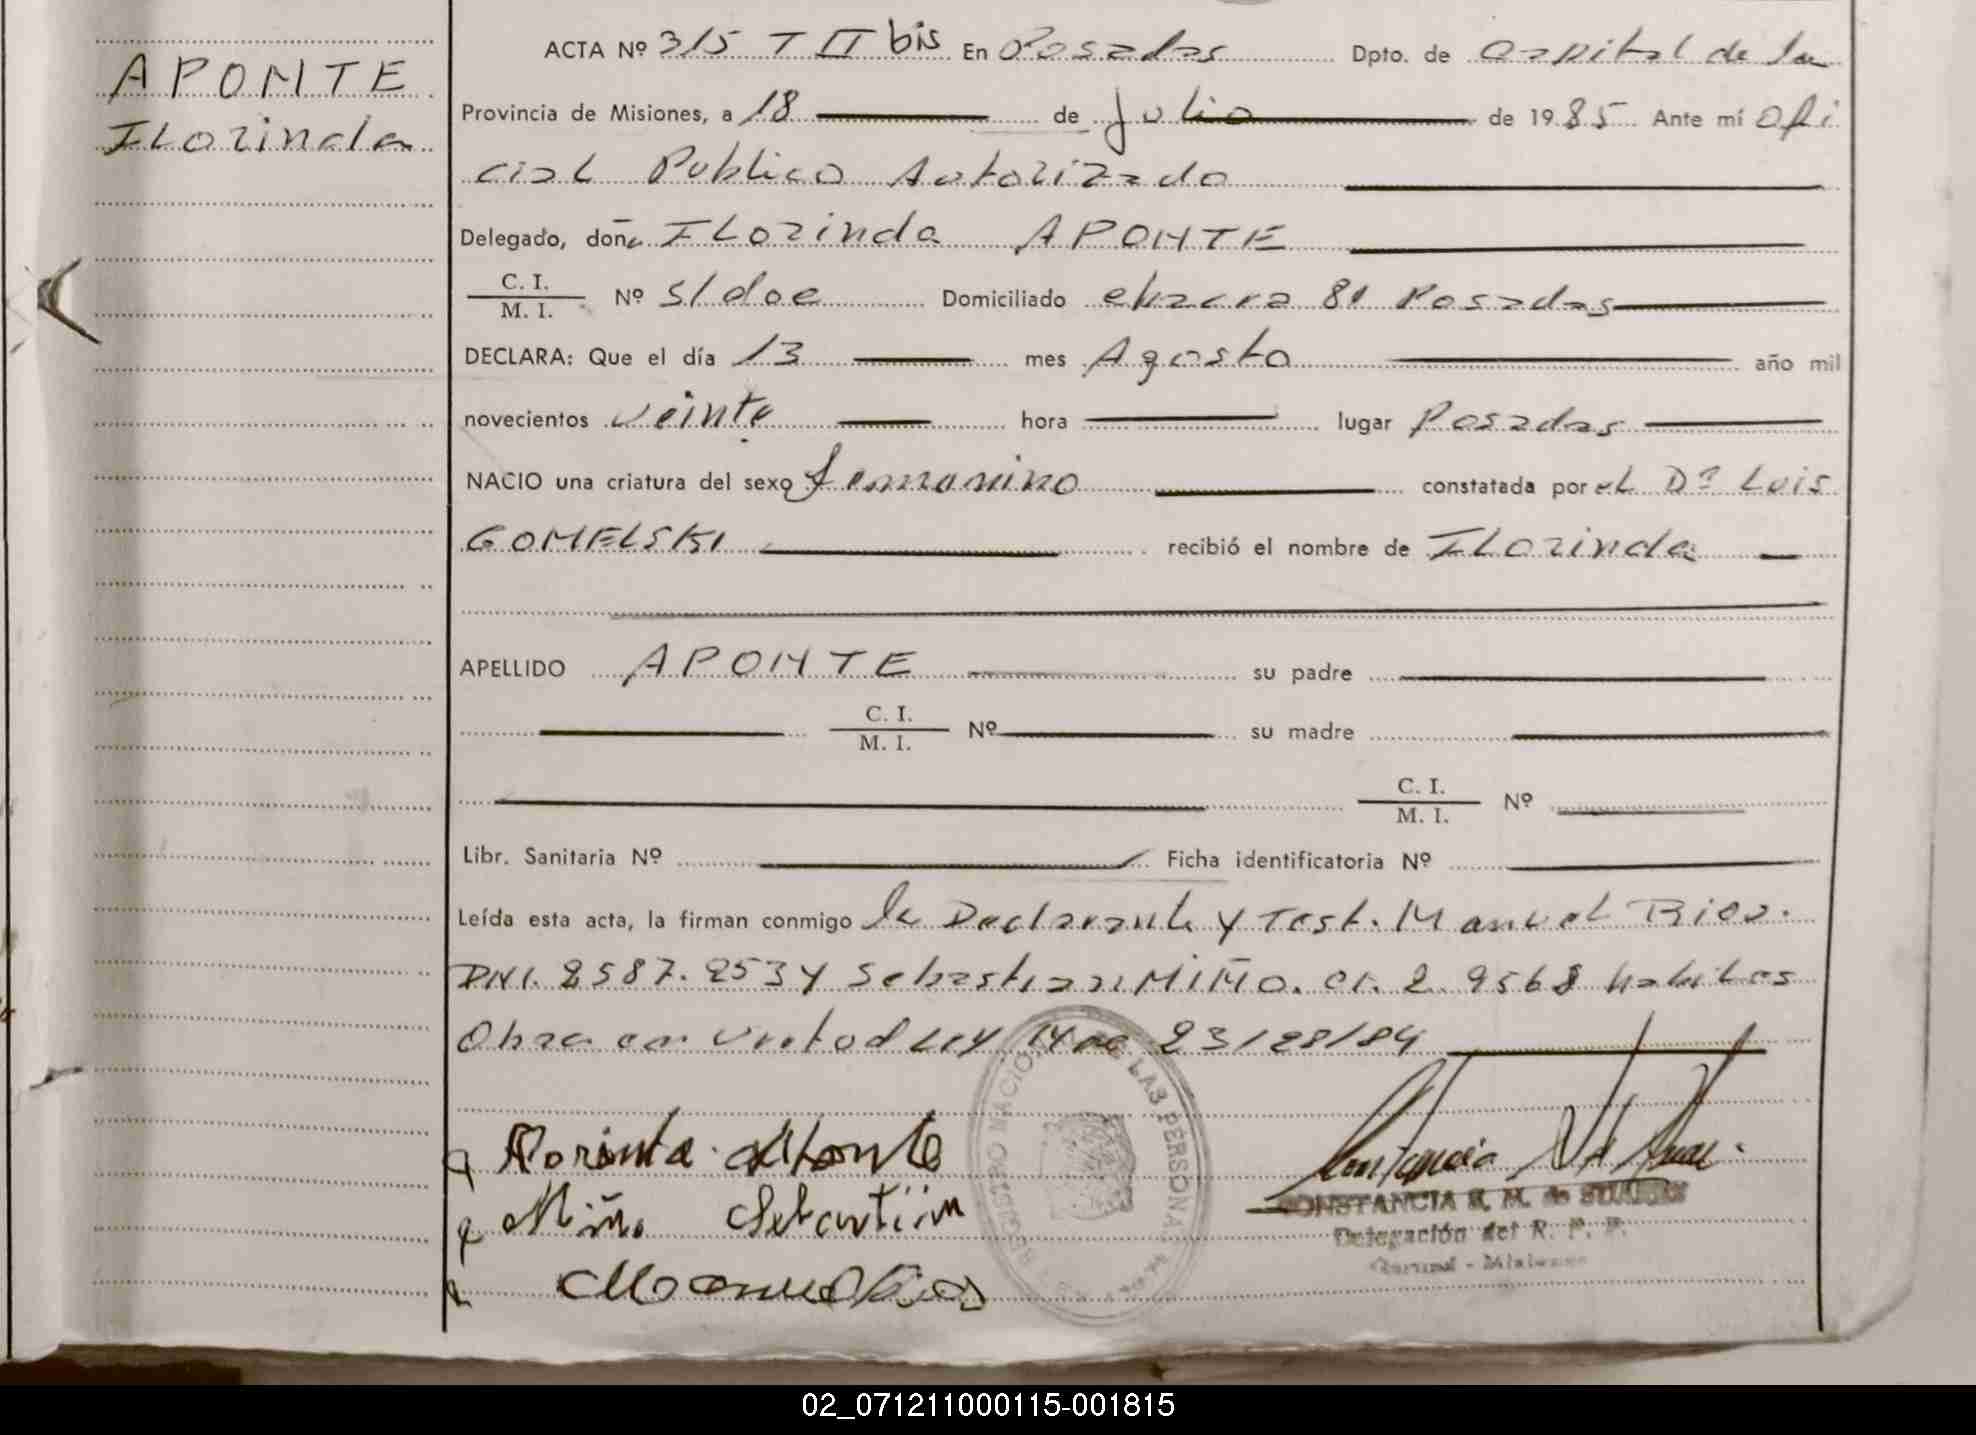 APONTE
Florinda
ACTA Nº 315 T II bis En Posadas Dpto. de Capital de la
Provincia de Misiones, a 18 de Julio de 1985 Ante mí Ofi
cial Publico Autorizado
Delegado, doña Florinda APONTE
C. I.
M. I. Nº s/doc Domiciliado chacra 81 Posadas
DECLARA: Que el día 13 mes Agosto año mil
novecientos veinte hora lugar Posadas
NACIO una criatura del sexo femenino constatada por el Dr Luis
GOMELSKI recibió el nombre de Florinda
APELLIDO APONTE su padre
C. I.
M. I. Nº su madre
C. I.
M. I. Nº
Libr. Sanitaria Nº Ficha identificatoria Nº
Leída esta acta, la firman conmigo la Declarante y Test. Manuel Rios.
DNI. 8587.253 y Sebastian MIÑO. CI. 2 9568 habiles
Obra en virtud Ley 23/28/84
Florinda Aponte
Miño Sebastian
Manuel Rios
REGISTRO NACIONAL DE LAS PERSONAS
CONSTANCIA R. M. de SUAREZ
Delegación del R. P. P.